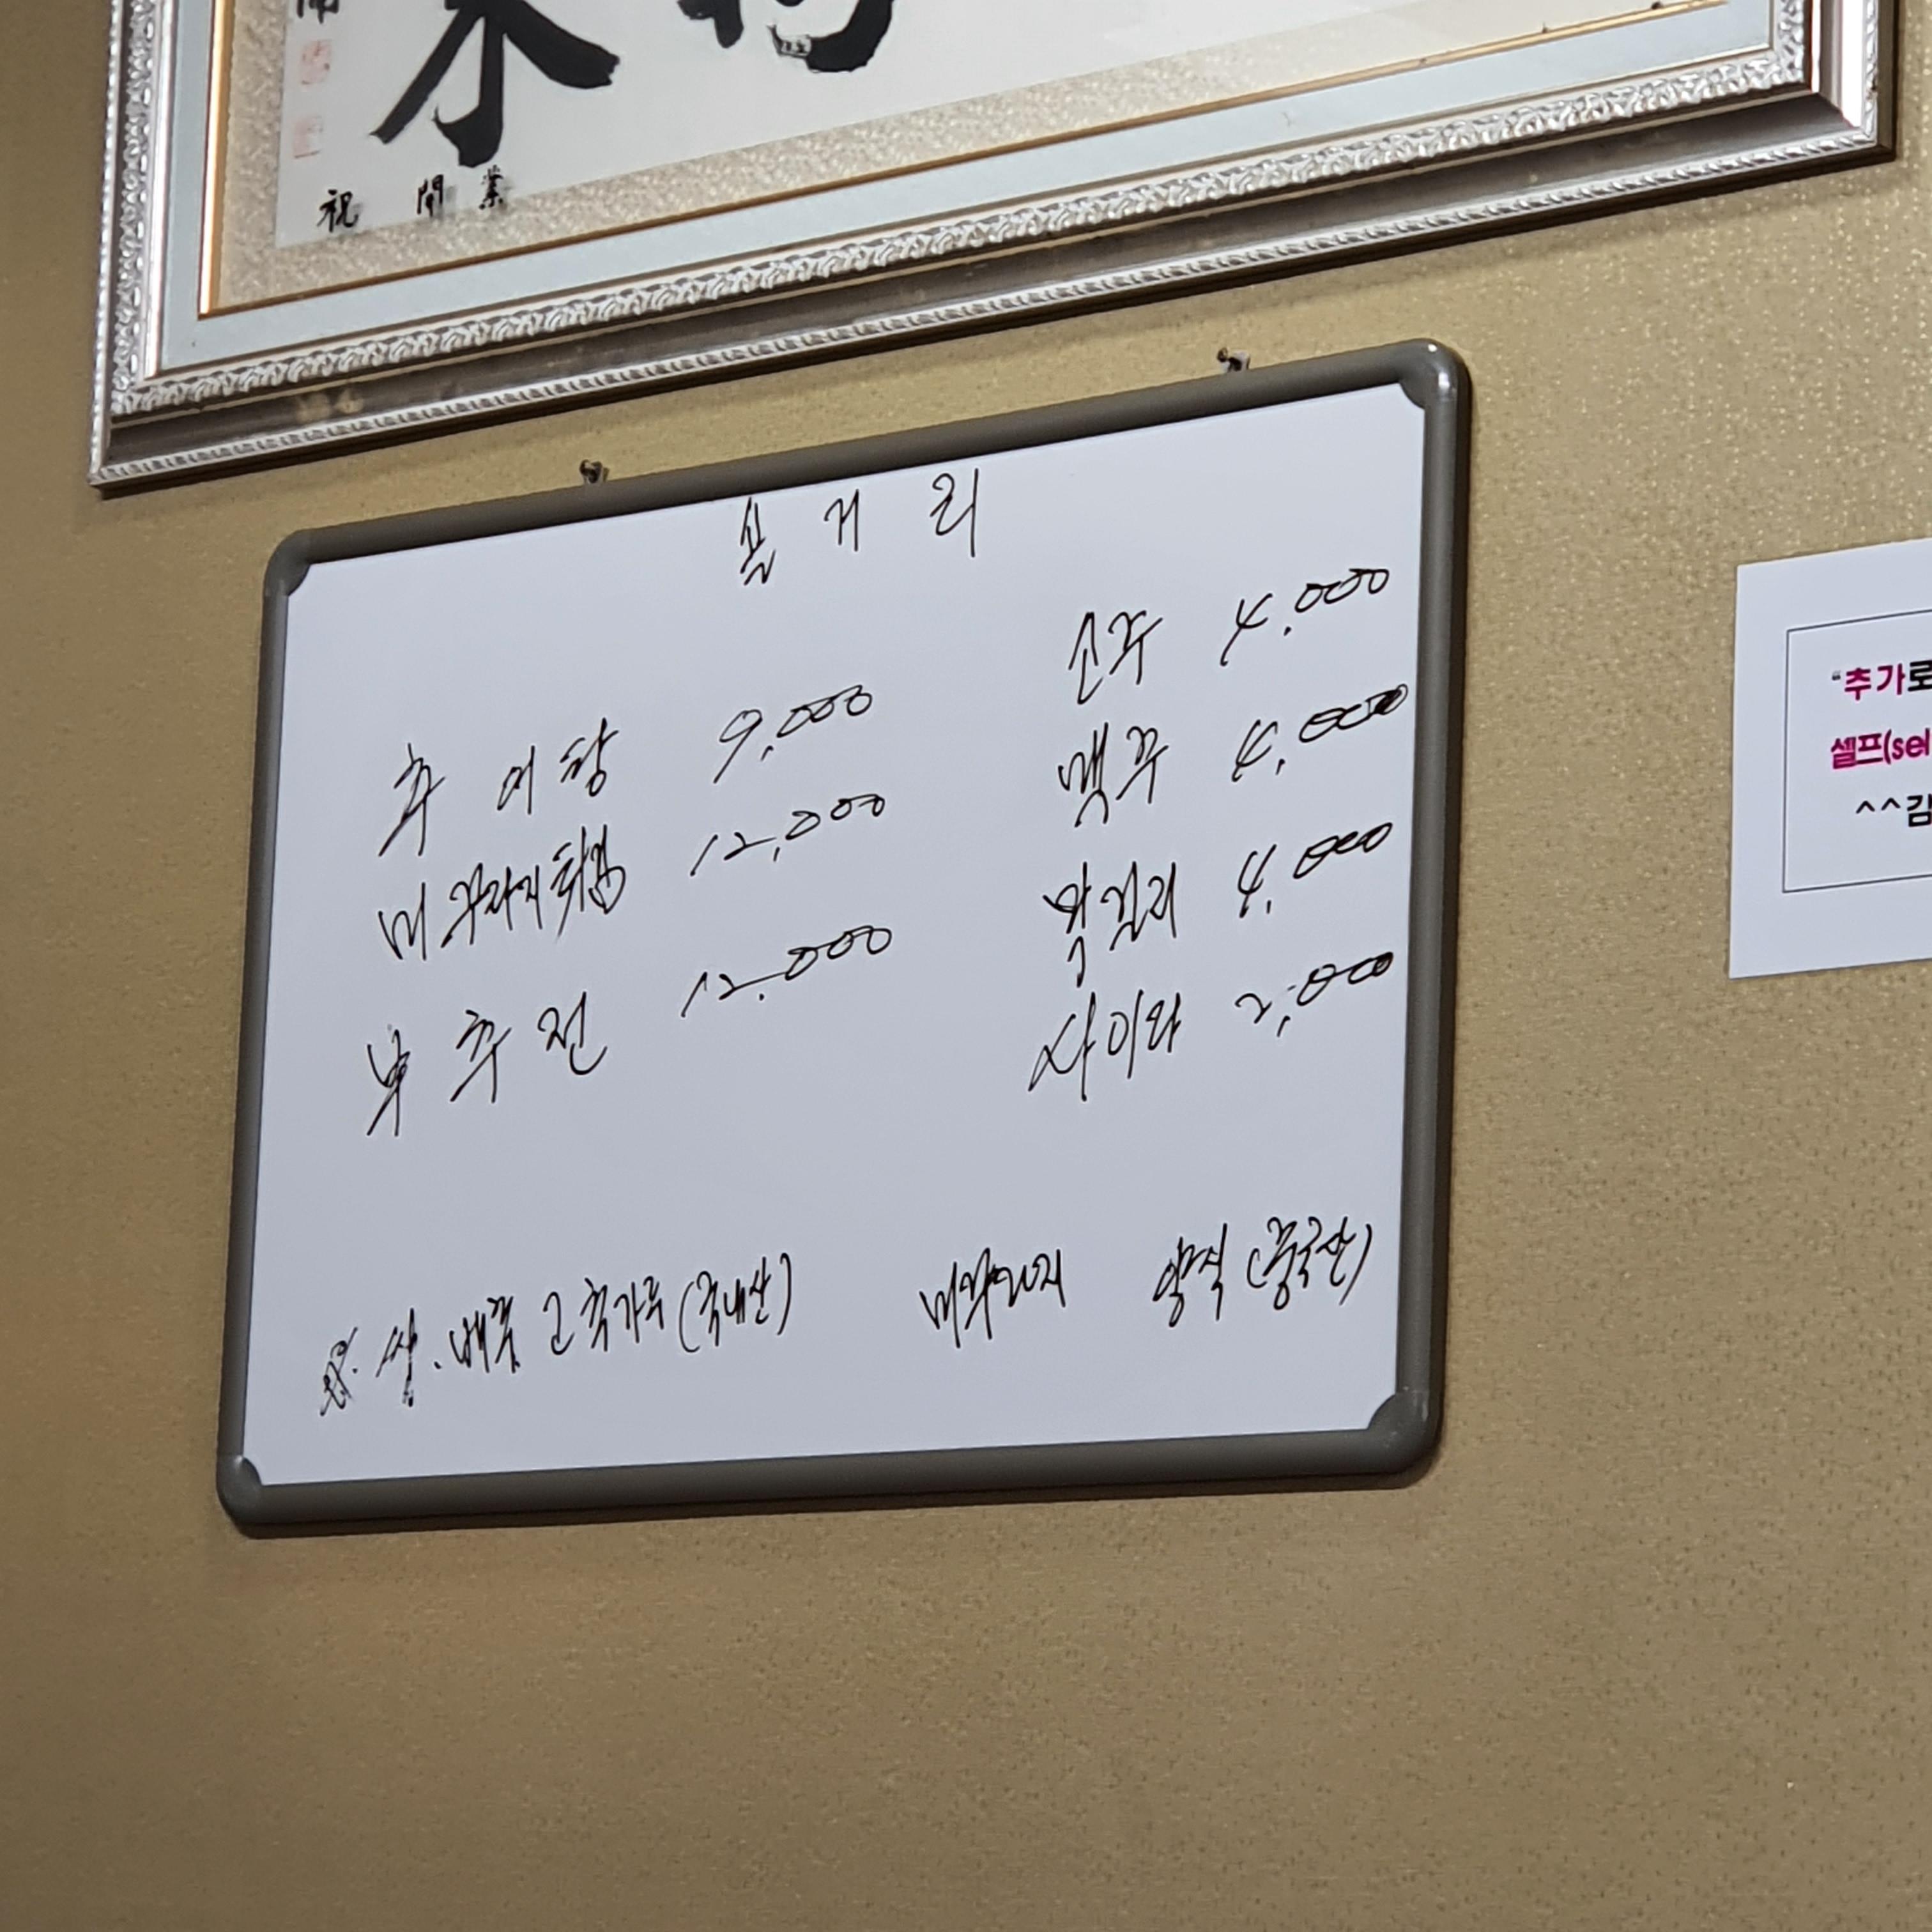 祝 開 業
솔 거 리
추 어 탕 9,000
미꾸라지튀김 12,000
부 추 전 12.000
소주 4,000
맥주 4,000
막걸리 4,000
사이다 2,000
※. 쌀. 배추 고추가루(국내산) 미꾸라지 양식(중국산)
"추가로
셀프(sel
^^감